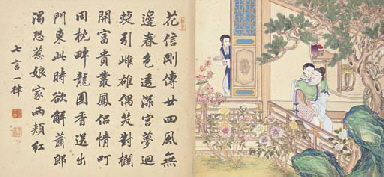 花信剛傳廿四風無
邊春色透深宮夢迴
蝶引雌雄偶笑對欄
開富貴叢鳳侶情叮
同枕畔龍團香送出
門東此時欲解蕭郎
渴恐惹家兩頰紅
七言一律